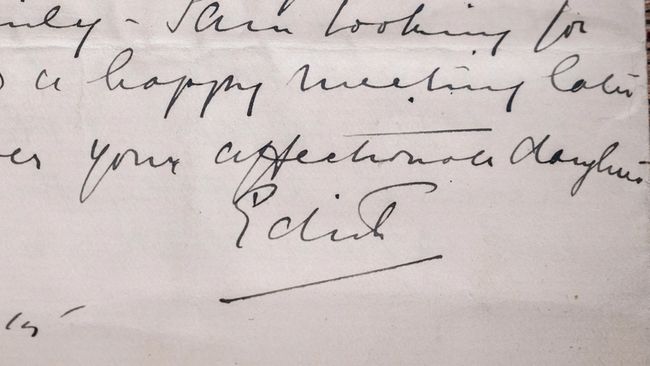 I am looking for
a happy meeting later
your affectionate daughter
Edith